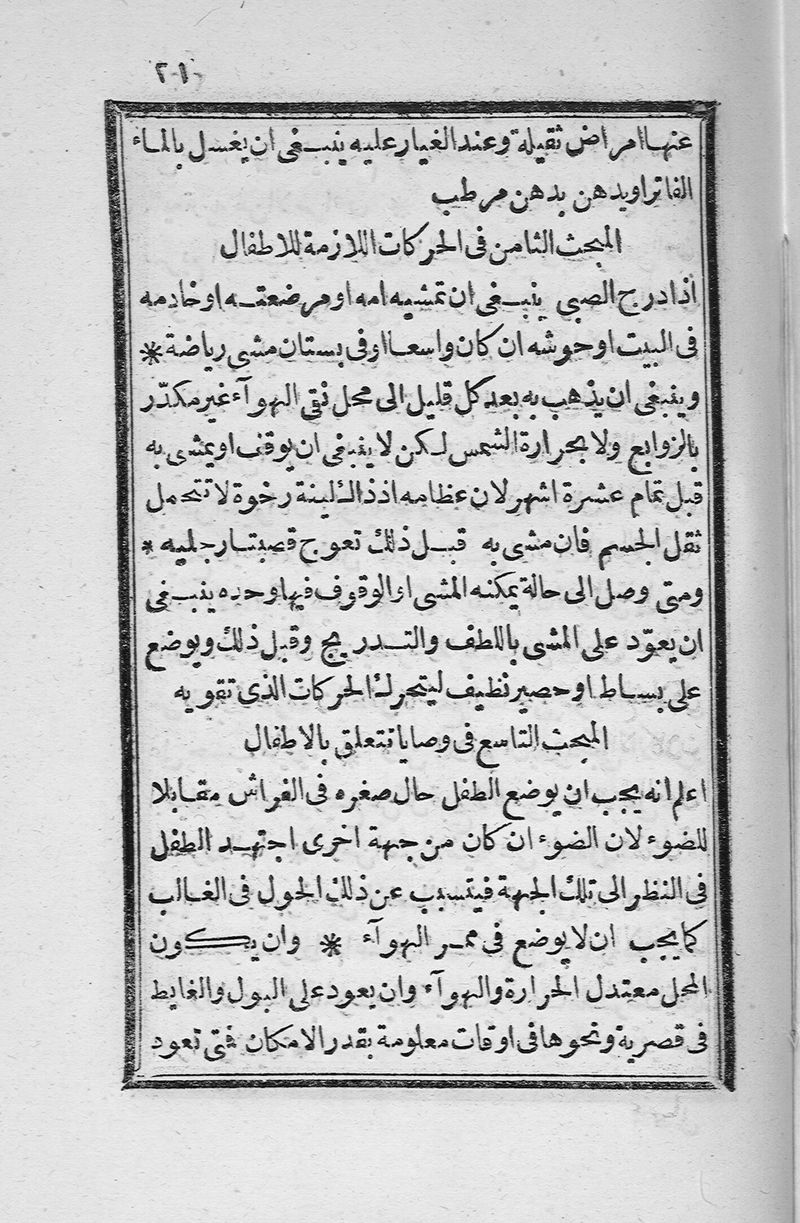 ٢١
عنها امراض ثقيلة وعند الغيار عليه ينبغى ان يغسل بالماء
الفاتر او يدهن بدهن مرطب
المبحث الثامن فى الحركات اللازمة للاطفال
اذا درج الصبى ينبغى ان تمشيه امه او مرضعته او خادمه
فى البيت او حوشه ان كان واسعا او فى بستان مشى رياضة *
وينبغى ان يذهب به بعد كل قليل الى محل نقى الهوآء غير مكدّر
بالزوابع ولا بحرارة الشمس لكن لا ينبغى ان يوقف او يمشى به
قبل تمام عشرة اشهر لان عظامه اذ ذاك لينة رخوة لا تتحمل
ثقل الجسم فان مشى به قبل ذلك تعوج قصبتا رجليه *
ومتى وصل الى حالة يمكنه المشى او الوقوف فيها وحده ينبغى
ان يعوّد على المشى باللطف والتدريج وقبل ذلك ويوضع
على بساط او حصير نظيف ليتحرك الحركات الذى تقويه
المبحث التاسع فى وصايا تتعلق بالاطفال
اعلم انه يجب ان يوضع الطفل حال صغره فى الفراش مقابلا
للضوء لان الضوء ان كان من جهة اخرى اجتهد الطفل
فى النظر الى تلك الجهة فيتسبب عن ذلك الحول فى الغالب
كما يجب ان لا يوضع فى ممر الهوآء * وان يكون
المحل معتدل الحرارة والهوآء وان يعود على البول والغايط
فى قصرية ونحوها فى اوقات معلومة بقدر الامكان فمتى تعود